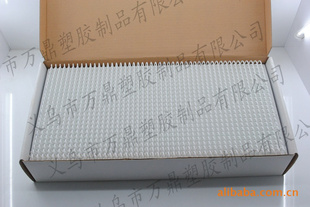 义乌市万鼎塑胶制品有限公司
义乌市万鼎塑胶制品有限公司
义乌市万鼎塑胶制品有限公司